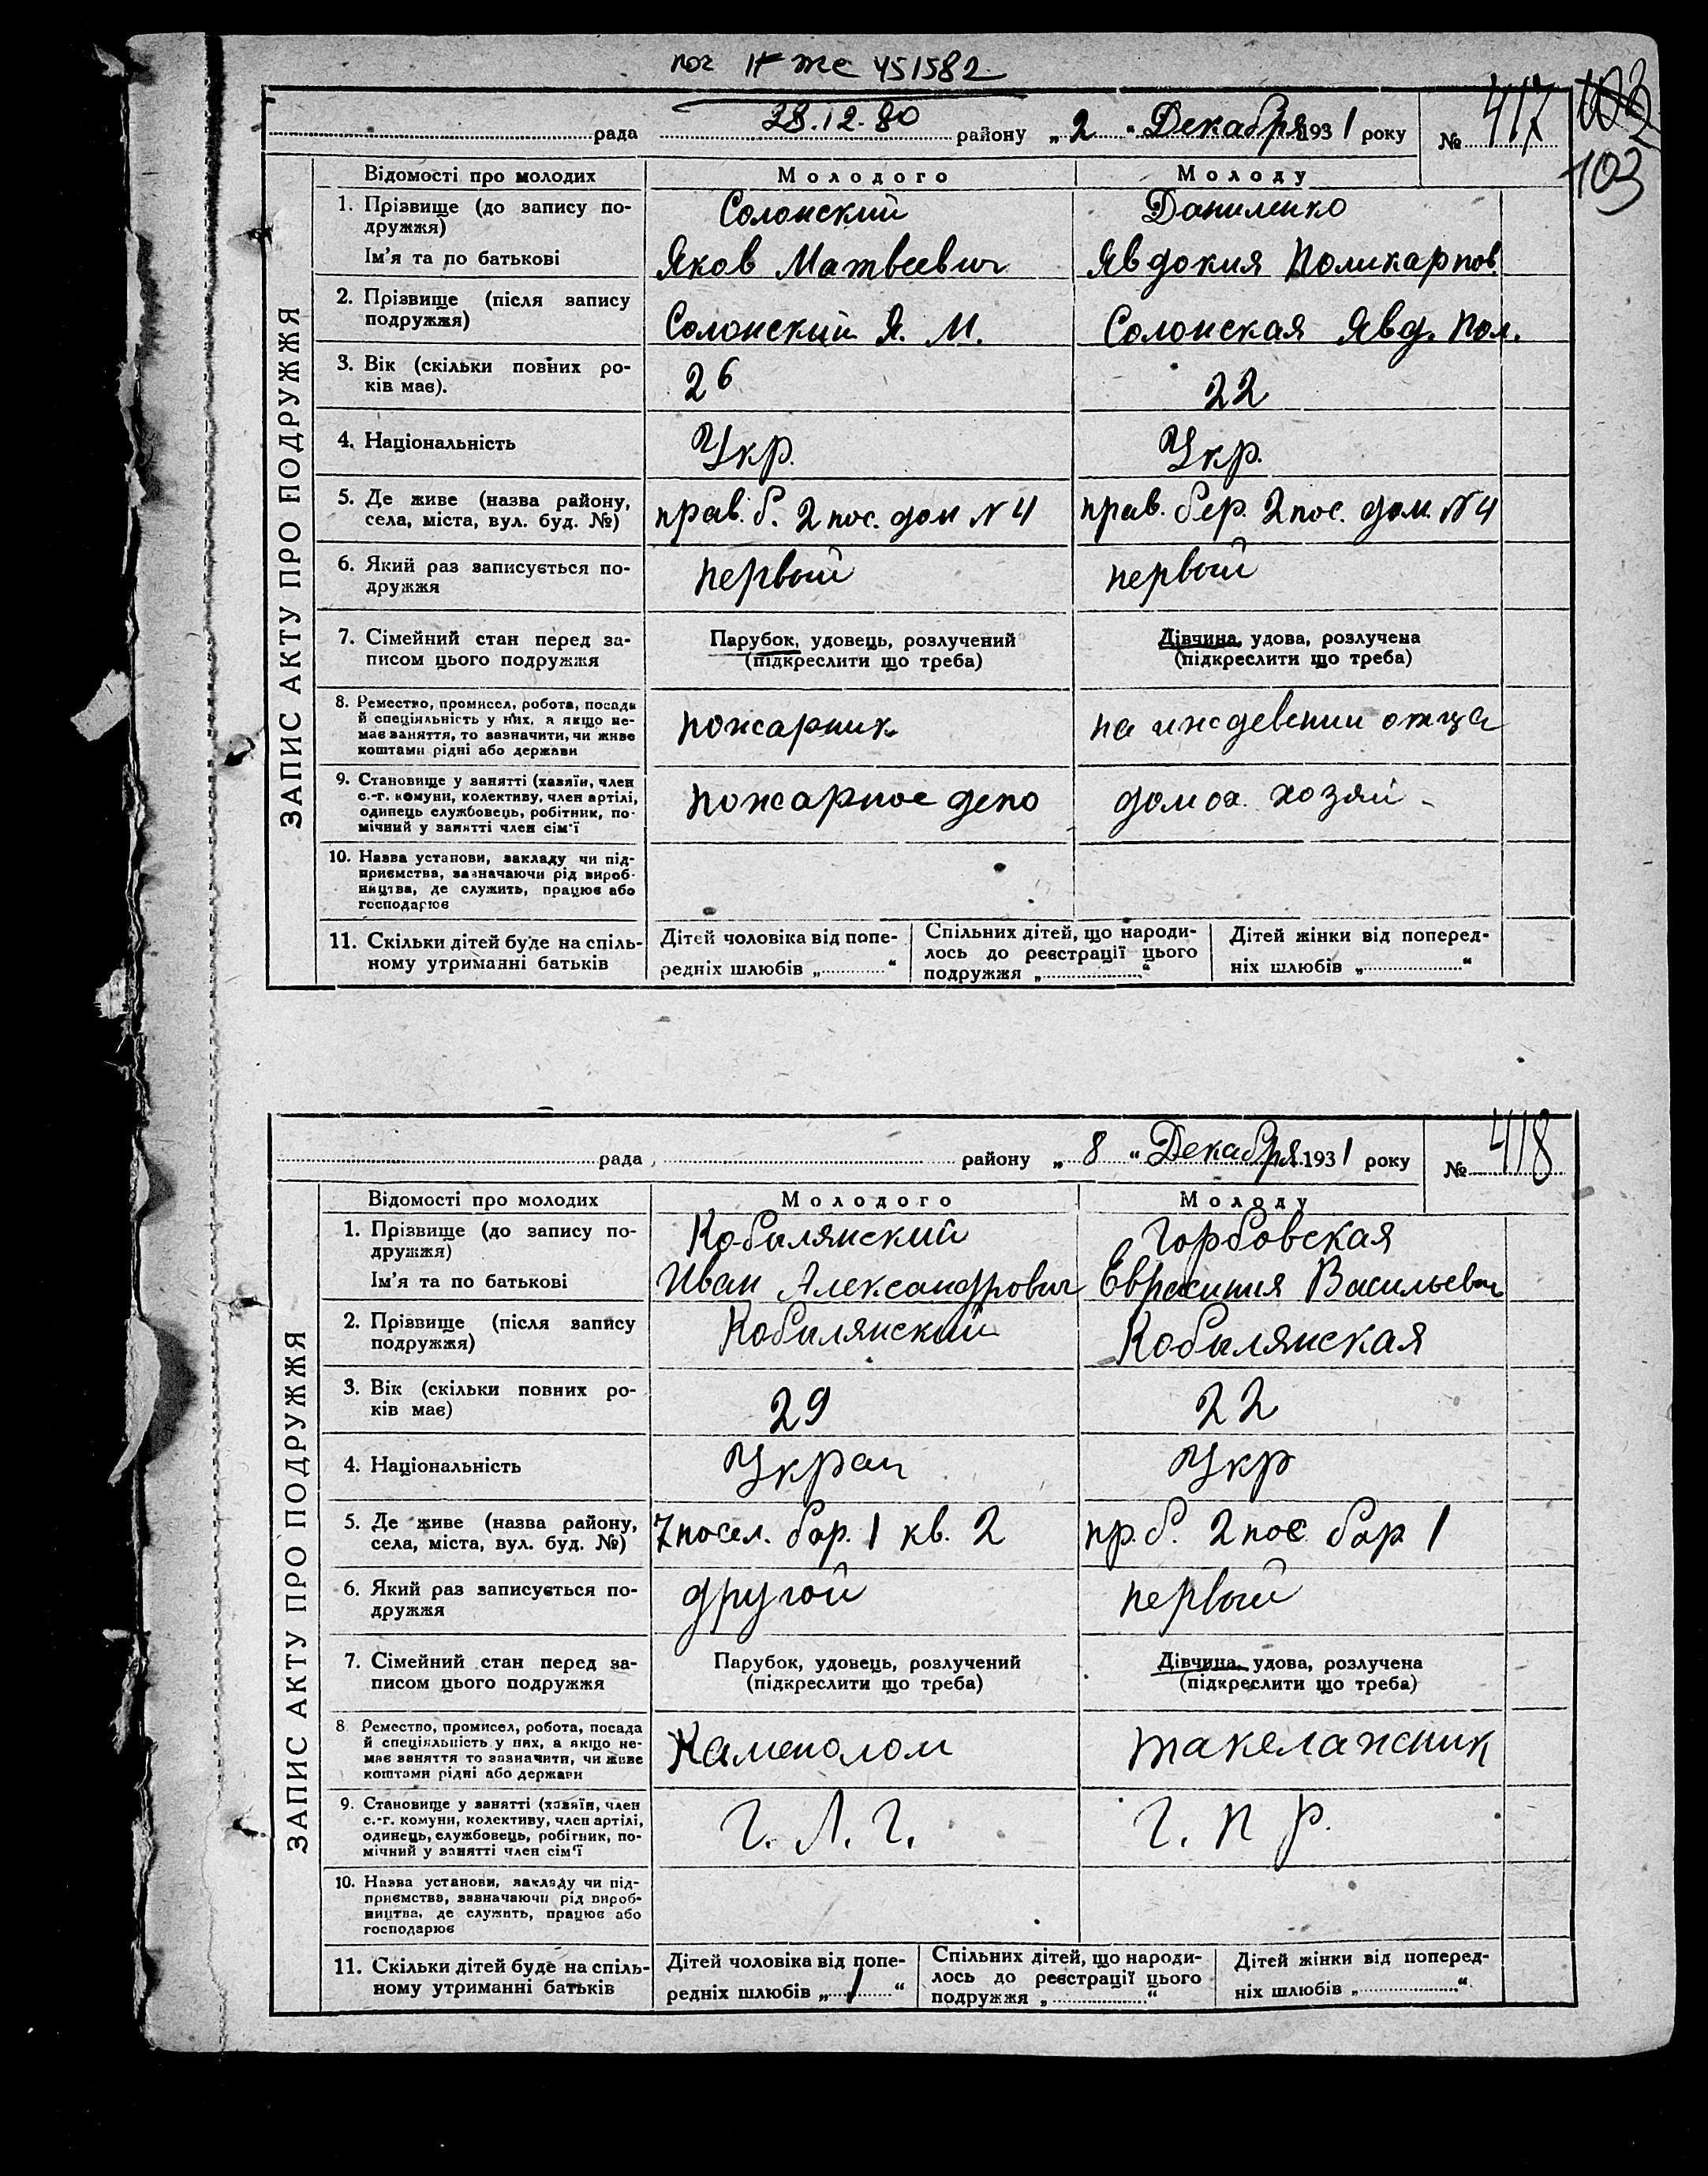 пог II ЖС 451582
28.12.80
рада района „ 2 " Декабря 1931 року № 417
103
ЗАПИС АКТУ ПРО ПОДРУЖЖЯ
Відомості про молодих Молодого Молоду
1. Прізвище (до запису по- Солонский Даниленко
дружжя)
Ім'я та по батькові Яков Матвеевич Явдокия Поликарпов
2. Прізвище (після запису Солонский Я. М. Солонская Явд. Пол.
подружжя)
3. Вік (скільки повних ро- 26 22
ків має).
4. Національність Укр. Укр.
5. Де живе (назва району, прав. б. 2 пос. дом N 4 прав. бер. 2 пос. дом. N 4
села, міста, вул. буд. №)
6. Який раз записується по- первый первый
дружжя
7. Сімейний стан перед за- Парубок, удовець, розлучений Дівчина, удова, розлучена
писом цього подружжя (підкреслити що треба) (підкреслити що треба)
8. Ремество, промисел, робота, посада
й спеціяльність у них, а якщо не- пожарник на иждевении отца
має заняття, то зазначити, чи живе
коштами рідні або держави
9. Становище у занятті (хазяїн, член
с.-г. комуни, колективу, член артілі, пожарное депо домох. хозяй-
одинець службовець, робітник, по-
мічний у занятті член сім'ї
10. Назва установи, закладу чи під-
приємства, зазначаючи рід вироб-
ництва, де служить, працює або
господарює
11. Скільки дітей буде на спіль- Дітей чоловіка від попе- Спільних дітей, що народи- Дітей жінки від поперед-
ному утриманні батьків редніх шлюбів „ " лось до реєстрації цього ніх шлюбів „ "
подружжя „ "
рада району „ 8 " Декабря 1931 року № 418
ЗАПИС АКТУ ПРО ПОДРУЖЖЯ
Відомості про молодих Молодого Молоду
1. Прізвище (до запису по- Кобылянский Горбовская
дружжя)
Ім'я та по батькові Иван Александрович Евросиния Васильевн
2. Прізвище (після запису Кобылянский Кобылянская
подружжя)
3. Вік (скільки повних ро- 29 22
ків має)
4. Національність Украи Укр
5. Де живе (назва району, 7 посел. бар. 1 кв. 2 пр. б. 2 пос бар 1
села, міста, вул. буд. №)
6. Який раз записується по- другой первый
дружжя
7. Сімейний стан перед за- Парубок, удовець, розлучений Дівчина, удова, розлучена
писом цього подружжя (підкреслити що треба) (підкреслити що треба)
8 Ремество, промисел, робота, посада
й спеціяльність у них, а якщо не- Каменолом такелажник
має заняття то зазначити, чи живе
коштами рідні або держави
9. Становище у занятті (хазяїн, член
с.-г. комуни, колективу, член артілі, Г. Л. Г. Г. П Р.
одинець, службовець, робітник, по-
мічний у занятті член сім'ї
10. Назва установи, закладу чи під-
приємства, зазначаючи рід вироб-
ництва, де служить, працює або
господарює
11. Скільки дітей буде на спіль- Дітей чоловіка від попе- Спільних дітей, що народи- Дітей жінки від поперед-
ному утриманні батьків редніх шлюбів „ 1 " лось до реєстрації цього ніх шлюбів „ "
подружжя „ "